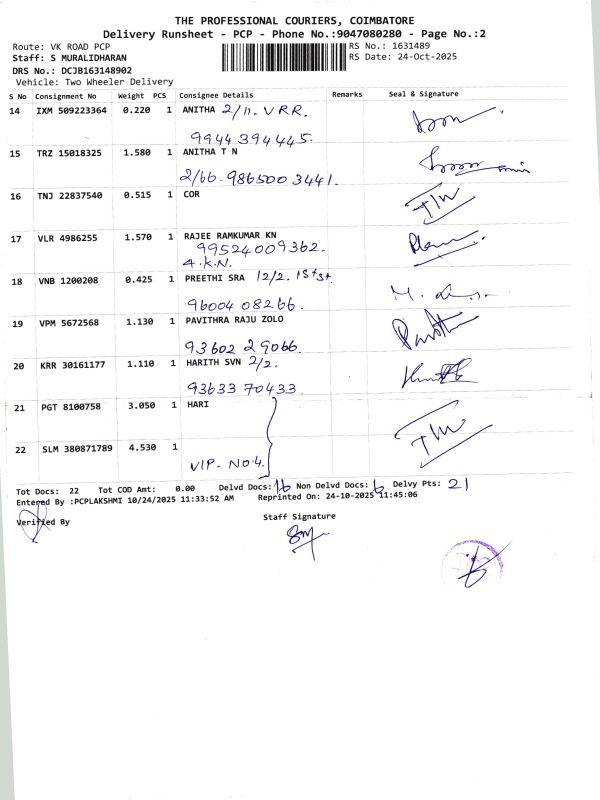 THE PROFESSIONAL COURIERS, COIMBATORE
Delivery Runsheet - PCP - Phone No.:9047080280 - Page No.:2
Route: VK ROAD PCP
RS No.: 1631489
Staff: S MURALIDHARAN
RS Date: 24-Oct-2025
DRS No.: DCJB163148902
Vehicle: Two Wheeler Delivery
S No Consignment No Weight PCS Consignee Details Remarks Seal & Signature
14 IXM 509223364 0.220 1 ANITHA 2/11. V R R.
9944394445.
15 TRZ 15018325 1.580 1 ANITHA T N
2/66. 9865003441.
16 TNJ 22837540 0.515 1 COR
17 VLR 4986255 1.570 1 RAJEE RAMKUMAR KN
99524009362.
A.K.N.
18 VNB 1200208 0.425 1 PREETHI SRA 12/2. 1st st.
9600408266.
19 VPM 5672568 1.130 1 PAVITHRA RAJU ZOLO
93602 29066.
20 KRR 30161177 1.110 1 HARITH SVN 2/2.
93633 70433.
21 PGT 8100758 3.050 1 HARI
22 SLM 380871789 4.530 1
VIP. No4.
Tot Docs: 22 Tot COD Amt: 0.00 Delvd Docs: 16 Non Delvd Docs: 6 Delvy Pts: 21
Entered By :PCPLAKSHMI 10/24/2025 11:33:52 AM Reprinted On: 24-10-2025 11:45:06
Verified By
Staff Signature